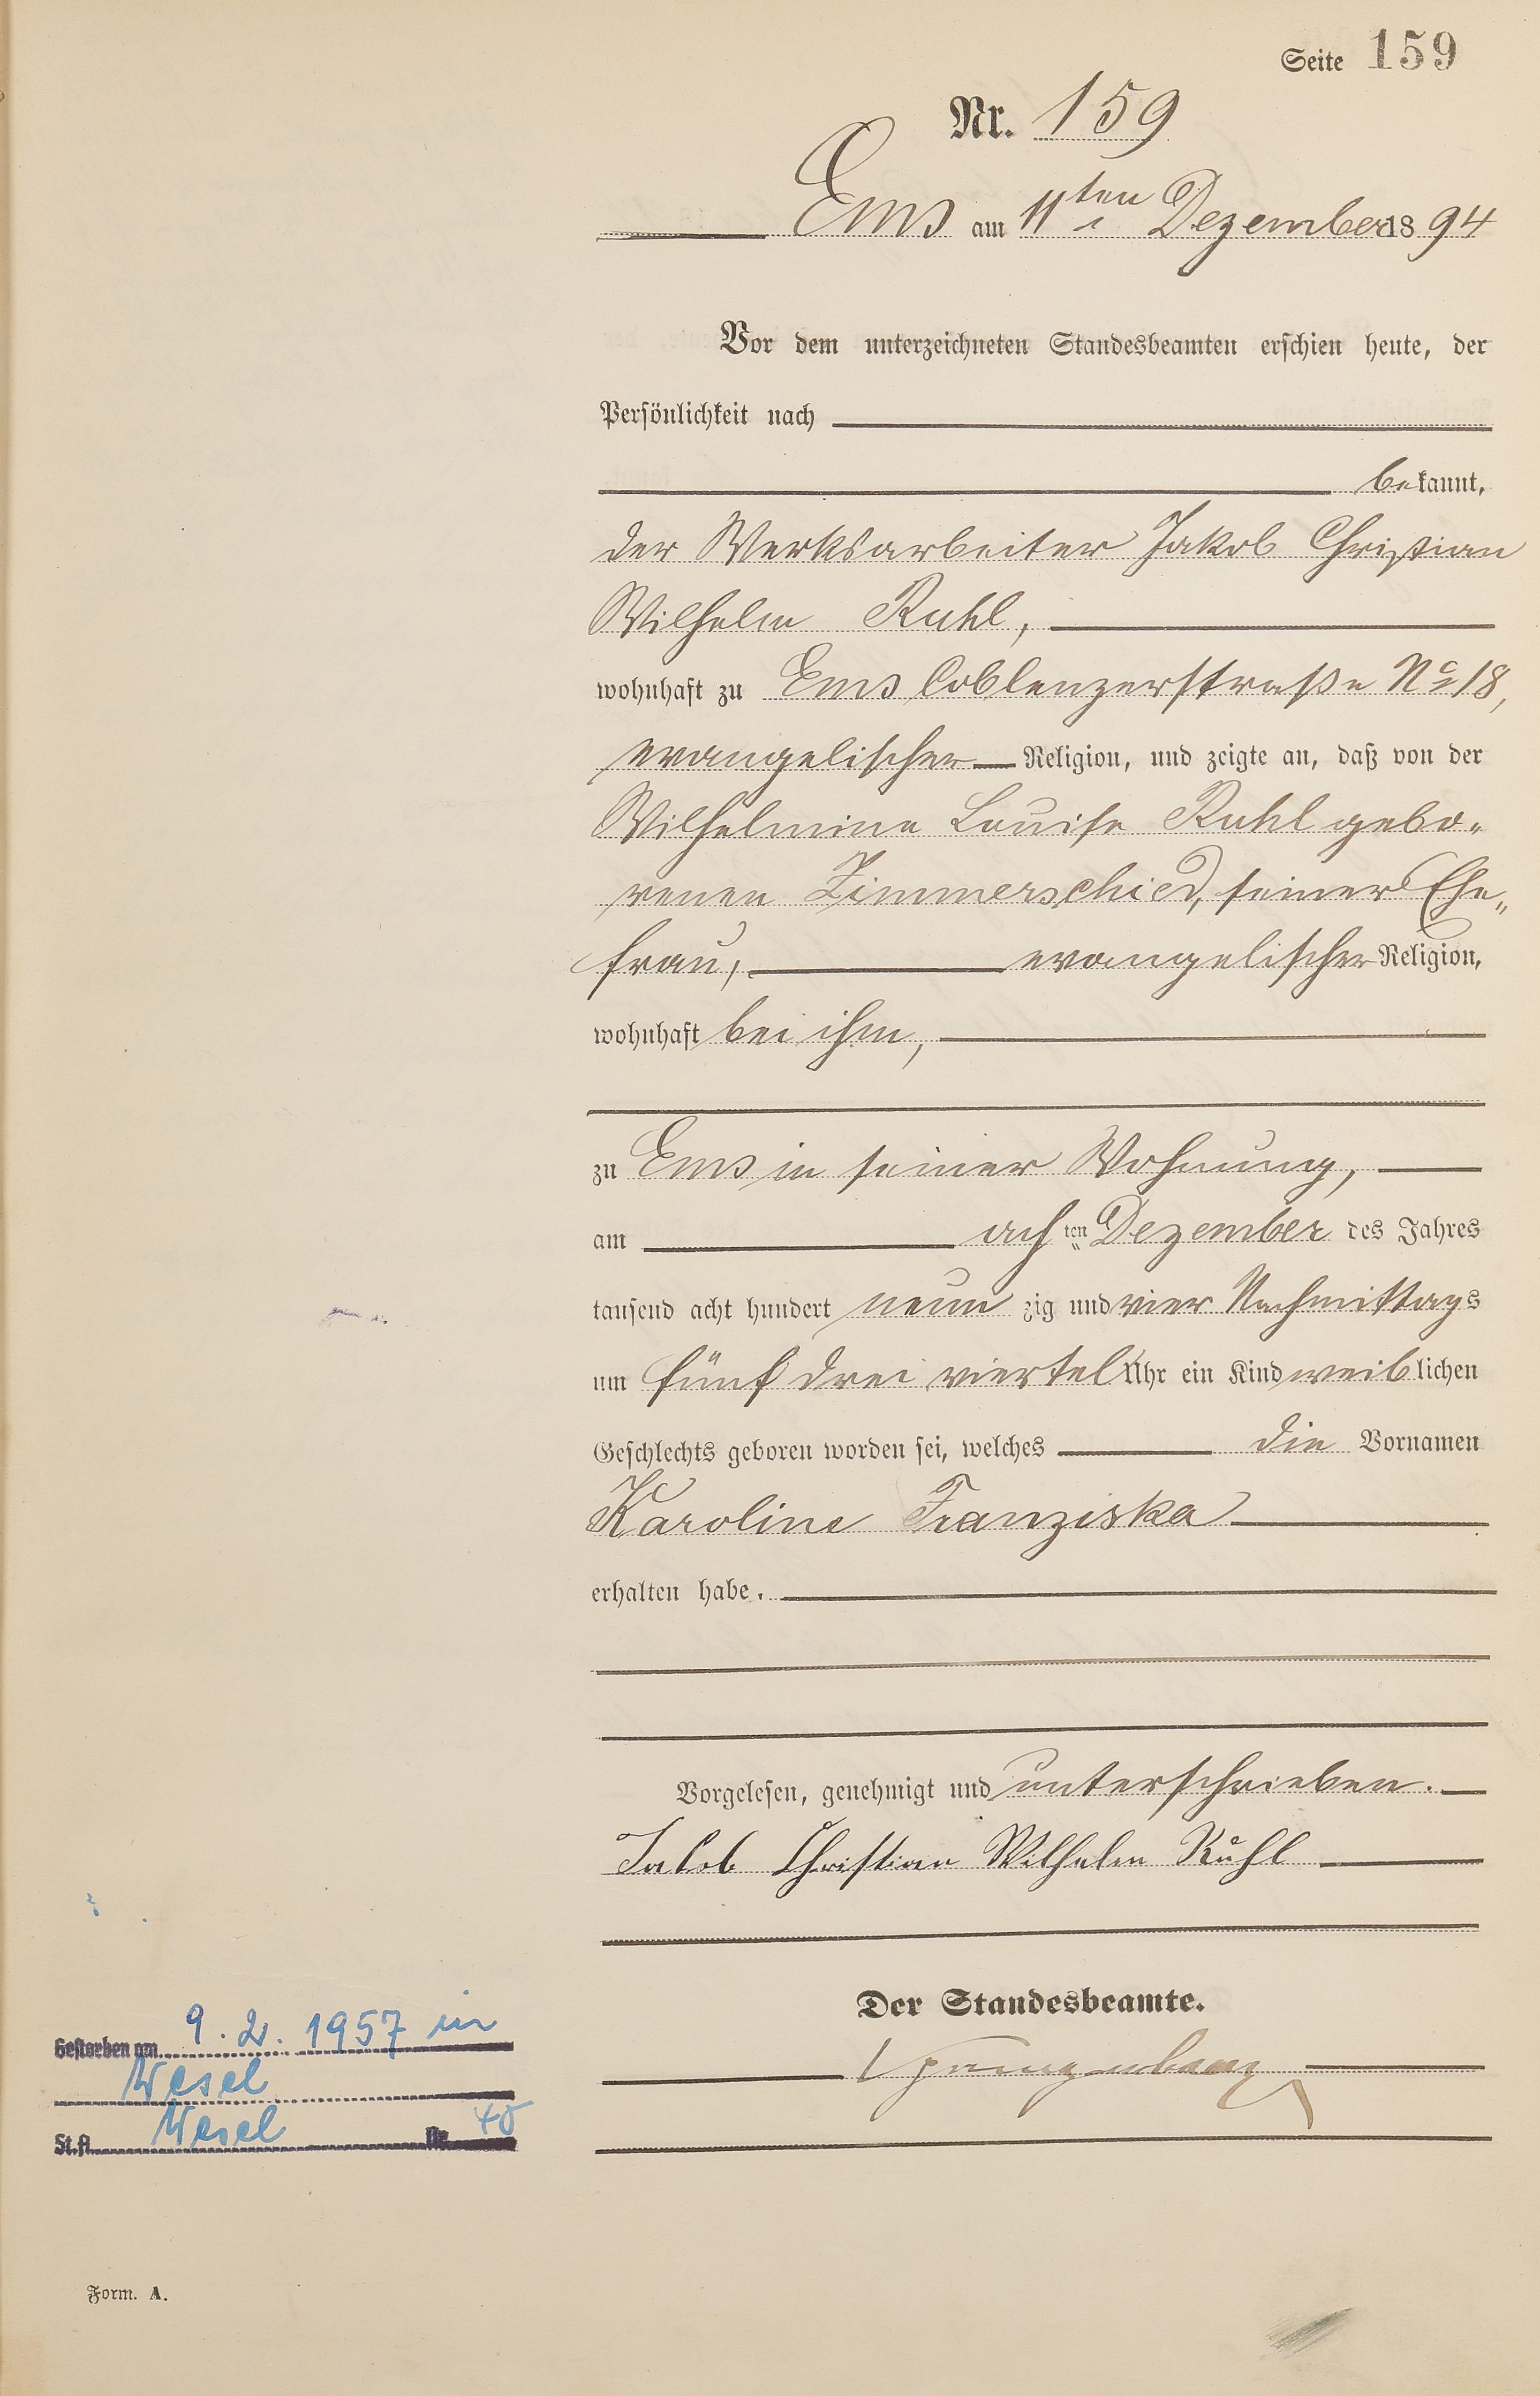 Seite 159
Nr. 159
Ems am 11ten Dezember 1894
Vor dem unterzeichneten Standesbeamten erschien heute, der
Persönlichkeit nach
bekannt,
der Werksarbeiter Jakob Christian
Wilhelm Ruhl,
wohnhaft zu Ems Coblenzerstraße No 18,
evangelischer Religion, und zeigte an, daß von der
Wilhelmine Louise Ruhl gebo-
renen Zimmerschied, seiner Ehe-
frau, evangelischer Religion,
wohnhaft bei ihm,
zu Ems in seiner Wohnung,
am achten Dezember des Jahres
tausend acht hundert neunzig und vier Nachmittags
um fünf drei viertel Uhr ein Kind weiblichen
Geschlechts geboren worden sei, welches die Vornamen
Karoline Franziska
erhalten habe.
Vorgelesen, genehmigt und unterschrieben.
Jakob Christian Wilhelm Ruhl
Der Standesbeamte.
Gestorben am 9.2.1957 in
Wesel
St.A. Wesel Nr. 40
Form. A.